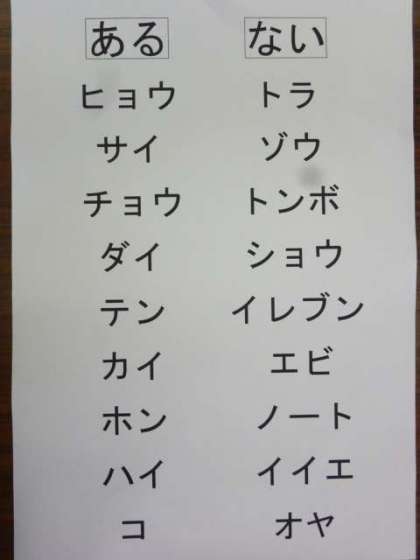 ある ない
ヒョウ トラ
サイ ゾウ
チョウ トンボ
ダイ ショウ
テン イレブン
カイ エビ
ホン ノート
ハイ イイエ
コ オヤ